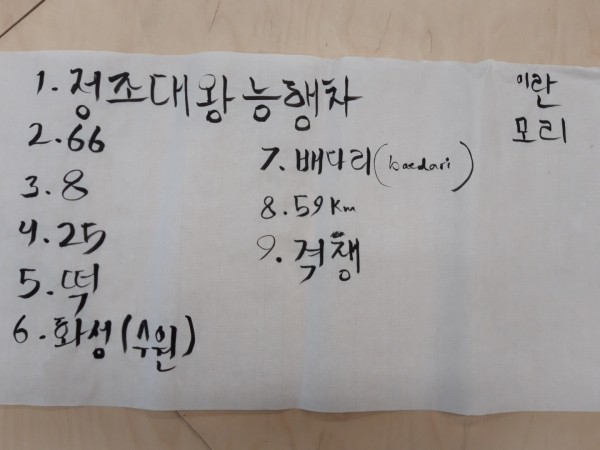 1. 정조대왕 능행차
2. 66
3. 8
4. 25
5. 떡
6. 화성(수원)
7. 배다리(baedari)
8. 59km
9. 격쟁
이란
모리